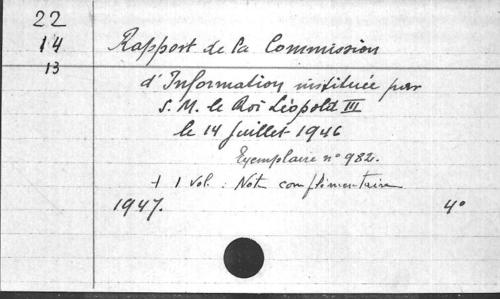 22
14
13
Rapport de la Commission
d'Information instituée par
S. M. le Roi Léopold III
le 14 Juillet 1946
Exemplaire n° 982.
+ 1 vol. : Note complémentaire
1947. 4°